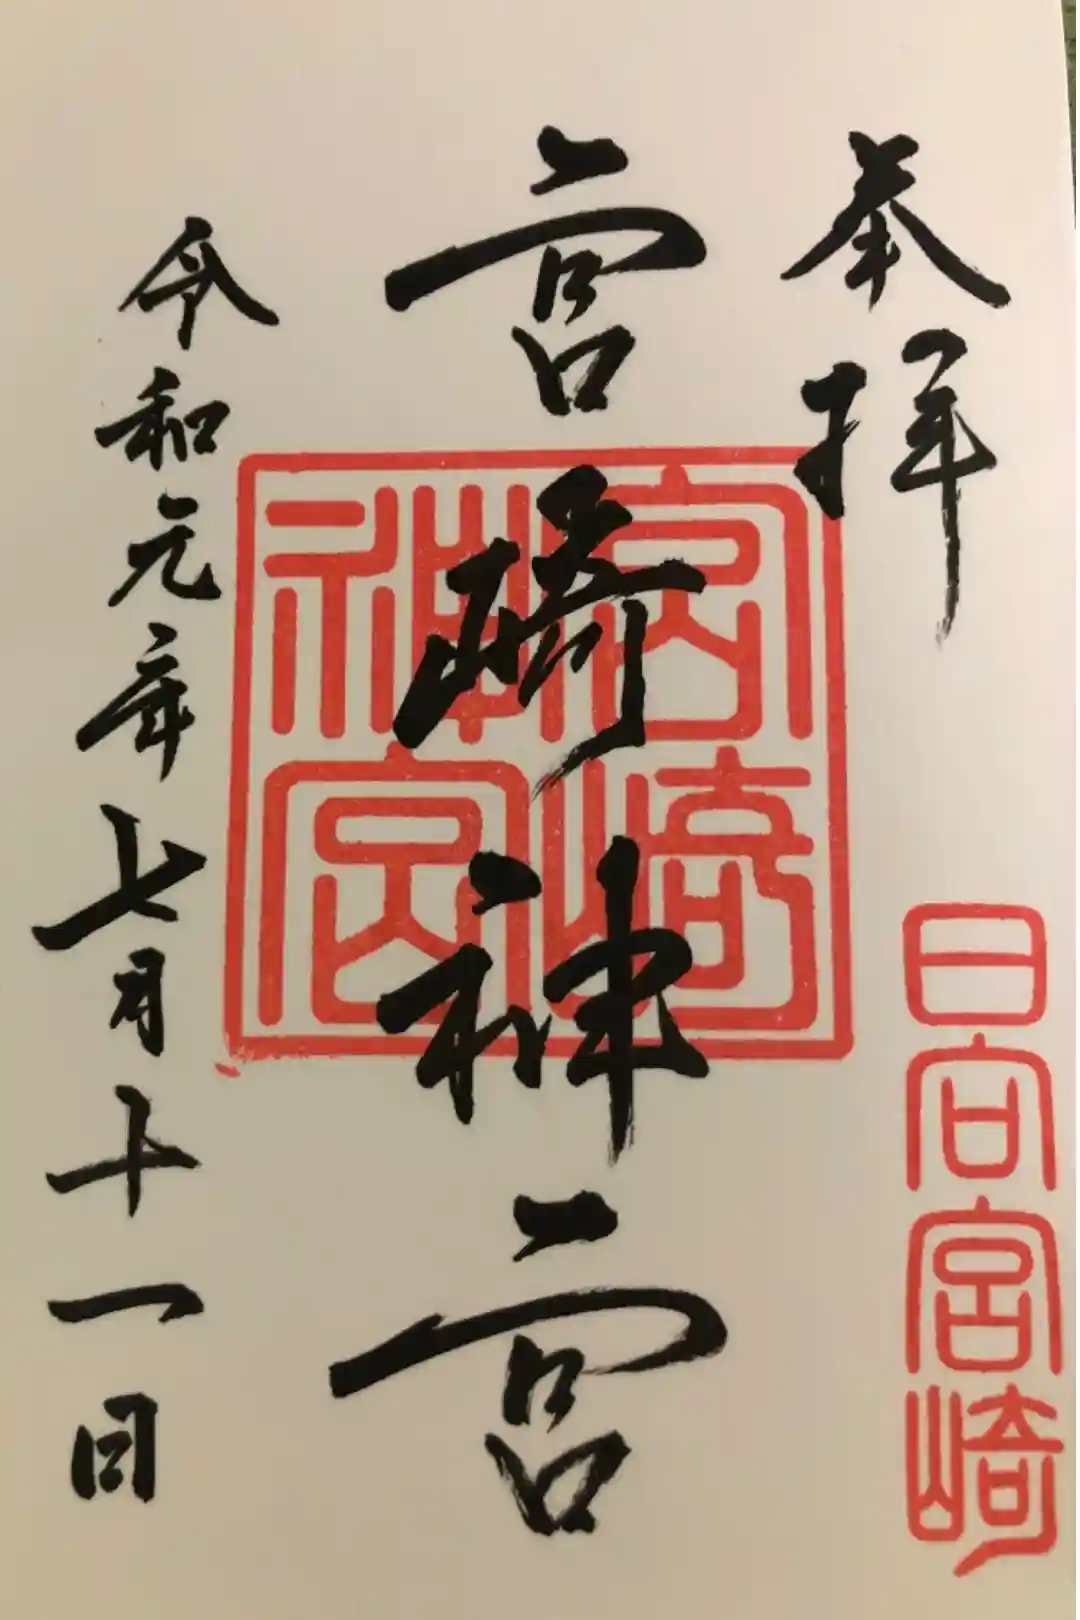 奉拝
日向宮崎
宮崎神宮
宮崎
神宮
令和元年七月十一日